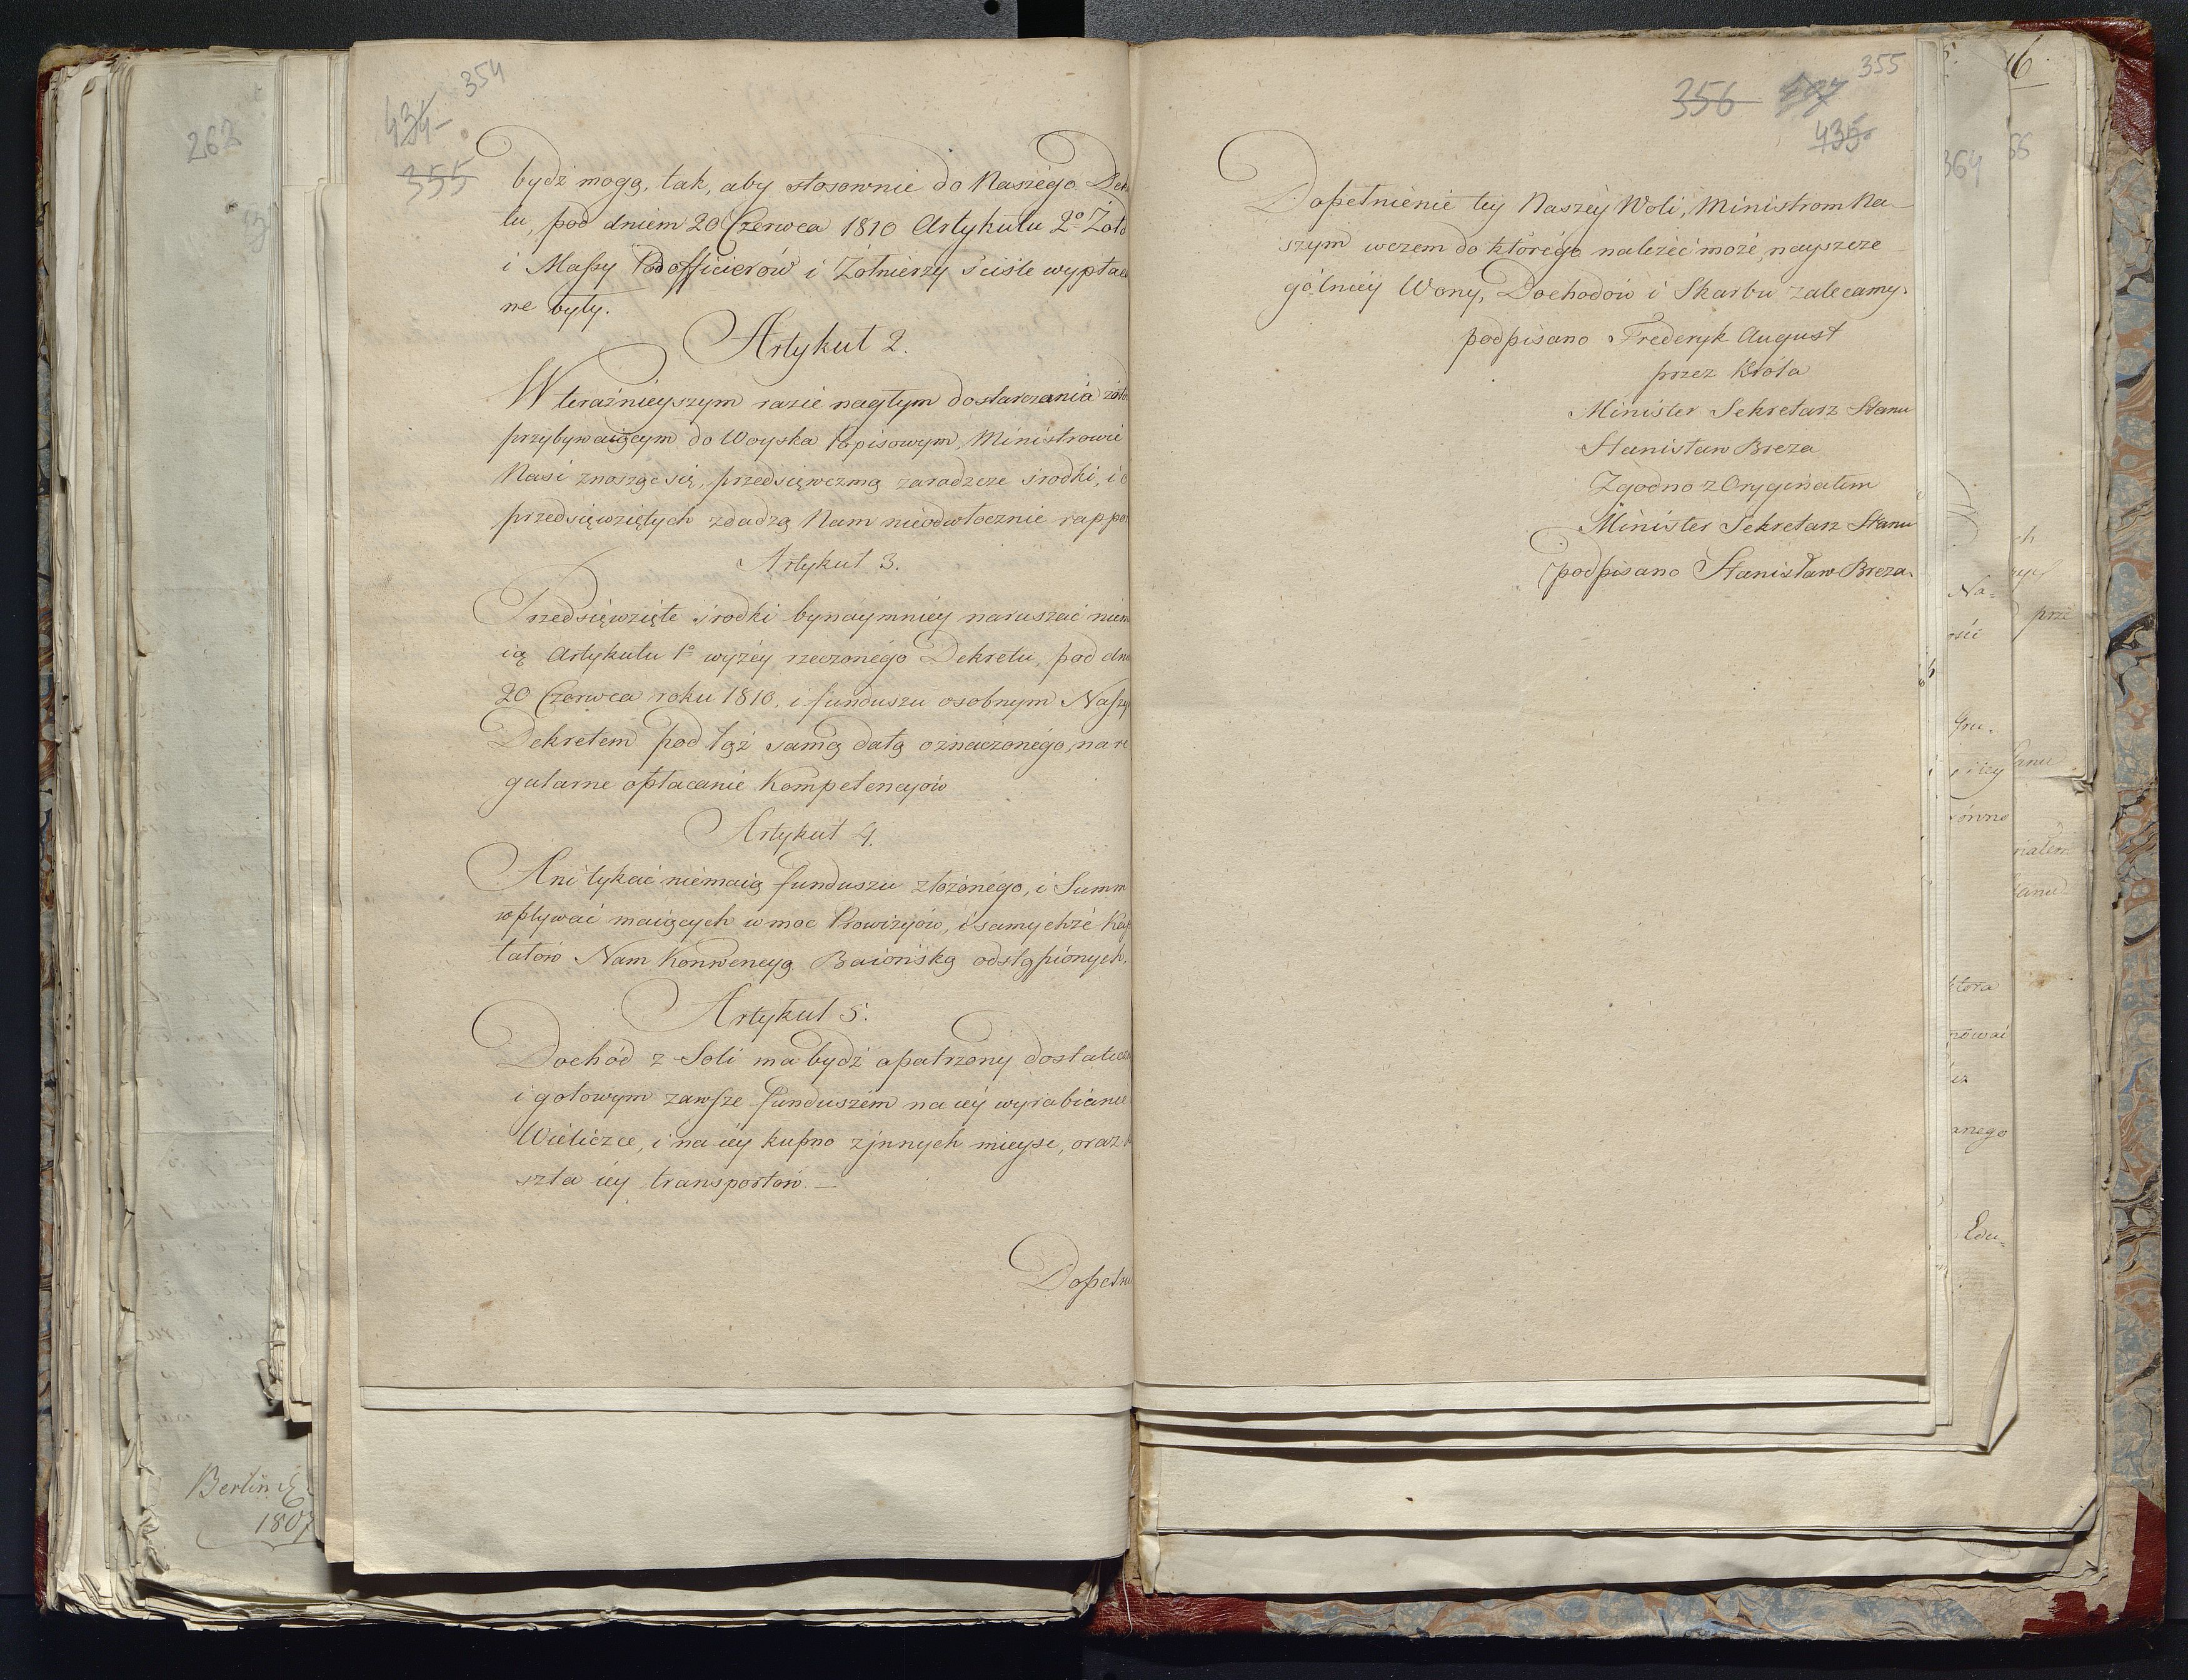 354
434
355
bydź mogą, tak, aby stosownie do Naszégo Dek
tu, pod dniem 20 Czerwca 1810 Artykułu 2º Żołd
i Massy Podofficierów i Żołnierzy sciśle wypłac
ne były.
Artykuł 2.
W teraźnieyszym razie nagłym dostarczania żołd
przybywaiącym do Woyska Popisowym, Ministrowie
Nasi znosząc się, przedsięwezmą zaradzcze srodki, i o
przedsięwziętych zdadzą Nam nieodwłocznie rappo
Artykuł 3.
Przedsięwzięte srodki bynaymniéy naruszać niem
ią Artykułu 1º wyżéy rzeczonégo Dekretu, pod dni
20 Czerwca roku 1810, i funduszu osobnym Naszy
Dekretem pod tąż samą datą oznaczonégo, na re
gularne opłacanie kompetencyów
Artykuł 4.
Ani tykać niemaią funduszu złożonégo, i Summ
wpływać maiących w moc Prowizyów, i samychże Kap
tałów Nam Konwencyą Baiońską odstąpionych.
Artykuł 5.
Dochód z Soli ma bydź opatrzony dostatec
i gotowym zawsze funduszém na iéy wyrabianie
Wieliczce, i na iéy kupno z jnnych mieysc, oraz k
szta iéy transportów. —
Dopełni
355
356
435
Dopełnienie téy Naszéy Woli, Ministrom Na-
szym w czem do którégo należéć możé, nayszcze
gólniéy Wony, Dochodów i Skarbu zalecamy.
podpisano Frederyk August
przez Króla
Minister Sekretarz Stanu
Stanisław Breza
Zgodno z Oryginałem
Minister Sekretarz Stanu
podpisano Stanisław Breza.
262
Berlin
1807
364
Na-
Gru-
anego
Edu-
prze